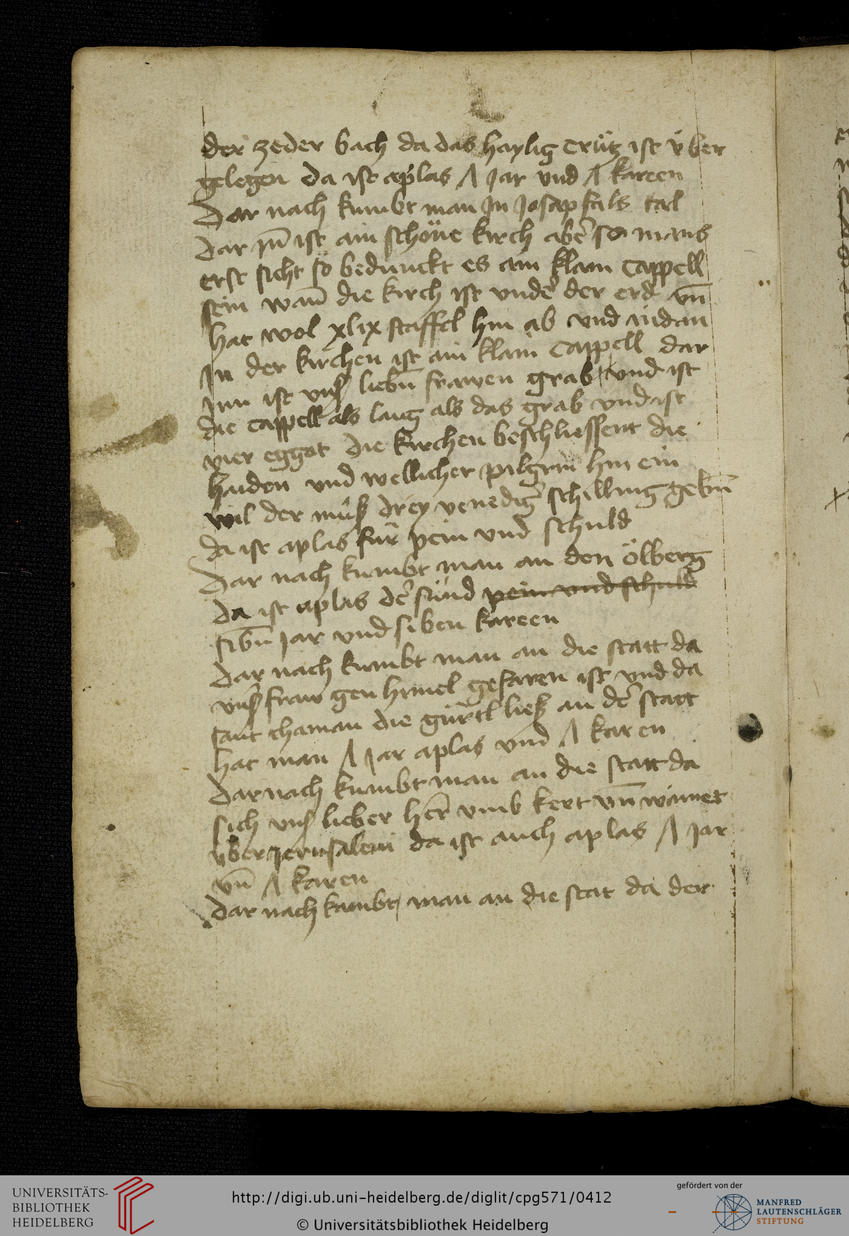 der zeder bach da das haylig crütz ist v̈ber
gelegen da ist aplas Λ Jar vnd Λ kareen
Dar nach kumbt man Jn Josapfals tal
Dar jn̄ ist ain schöne kirch abe͛ so mans
erst sicht so bedunckt es ain klain cappell
sein wan̄ die kirch ist vnde͛ der erd vn̄
hat wol xlix staffel hin ab vnd nidan
jn der kirchen ist ain klain cappell dar
jnn ist vnß liebn̄ frawen grab vnd ist
die cappell als lang als das grab vnd ist
vier eggot die kirchen beschliessent die
haiden vnd wellicher pilgrin hin ein
wil der můß drey venedige͛ schilling gebn̄
da ist aplas für pein vnd schuld
Dar nach kumbt man an den ölberg
Da ist aplas de͛ sünd pein vnd schuld
sibn̄ Jar vnd siben kareen
Dar nach kumbt man an die statt da
vnß fraw gen himel gefaren ist vnd da
sant thaman die gürtl ließ an de͛ statt
hat man Λ Jar aplas vnd Λ karen
Dar nach kumbt man an die statt da
sich vnß lieber her͛ vmb kert vn̄ wainet
v̈ber jerusalem da ist auch aplas Λ Jar
vn̄ Λ karen
Dar nach kumbt man an die stat da der
UNIVERSITÄTS-
BIBLIOTHEK
HEIDELBERG
http://digi.ub.uni-heidelberg.de/diglit/cpg571/0412
© Universitätsbibliothek Heidelberg
gefördert von der
MANFRED
LAUTENSCHLÄGER
STIFTUNG